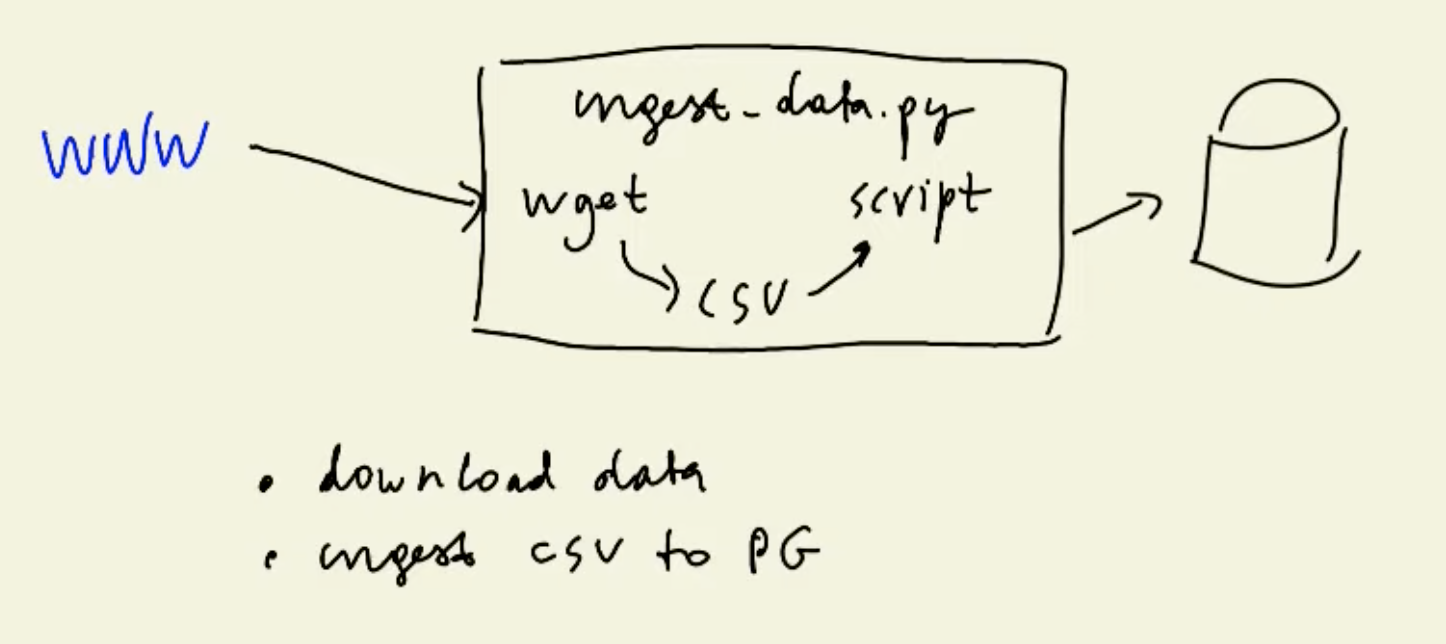 www
ingest_data.py
wget script
csv
• download data
• ingest csv to PG